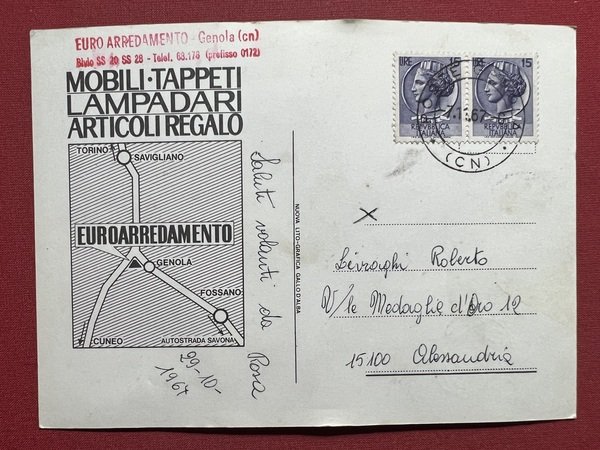 EURO ARREDAMENTO - Genola (cn)
Bivio SS 20 SS 28 - Telef. 68.178 (prefisso 0172)
MOBILI·TAPPETI
LAMPADARI
ARTICOLI REGALO
TORINO
SAVIGLIANO
EUROARREDAMENTO
GENOLA
FOSSANO
CUNEO
AUTOSTRADA SAVONA
Saluti volanti da Rosa
29-10-
1967
NUOVA LITO-GRAFICA GALLO D'ALBA
LIRE 15
LIRE 15
REPVBBLICA
ITALIANA
REPVBBLICA
ITALIANA
(CN)
X
Roberto
V/le Medaglie d'Oro 12
15100 Alessandria